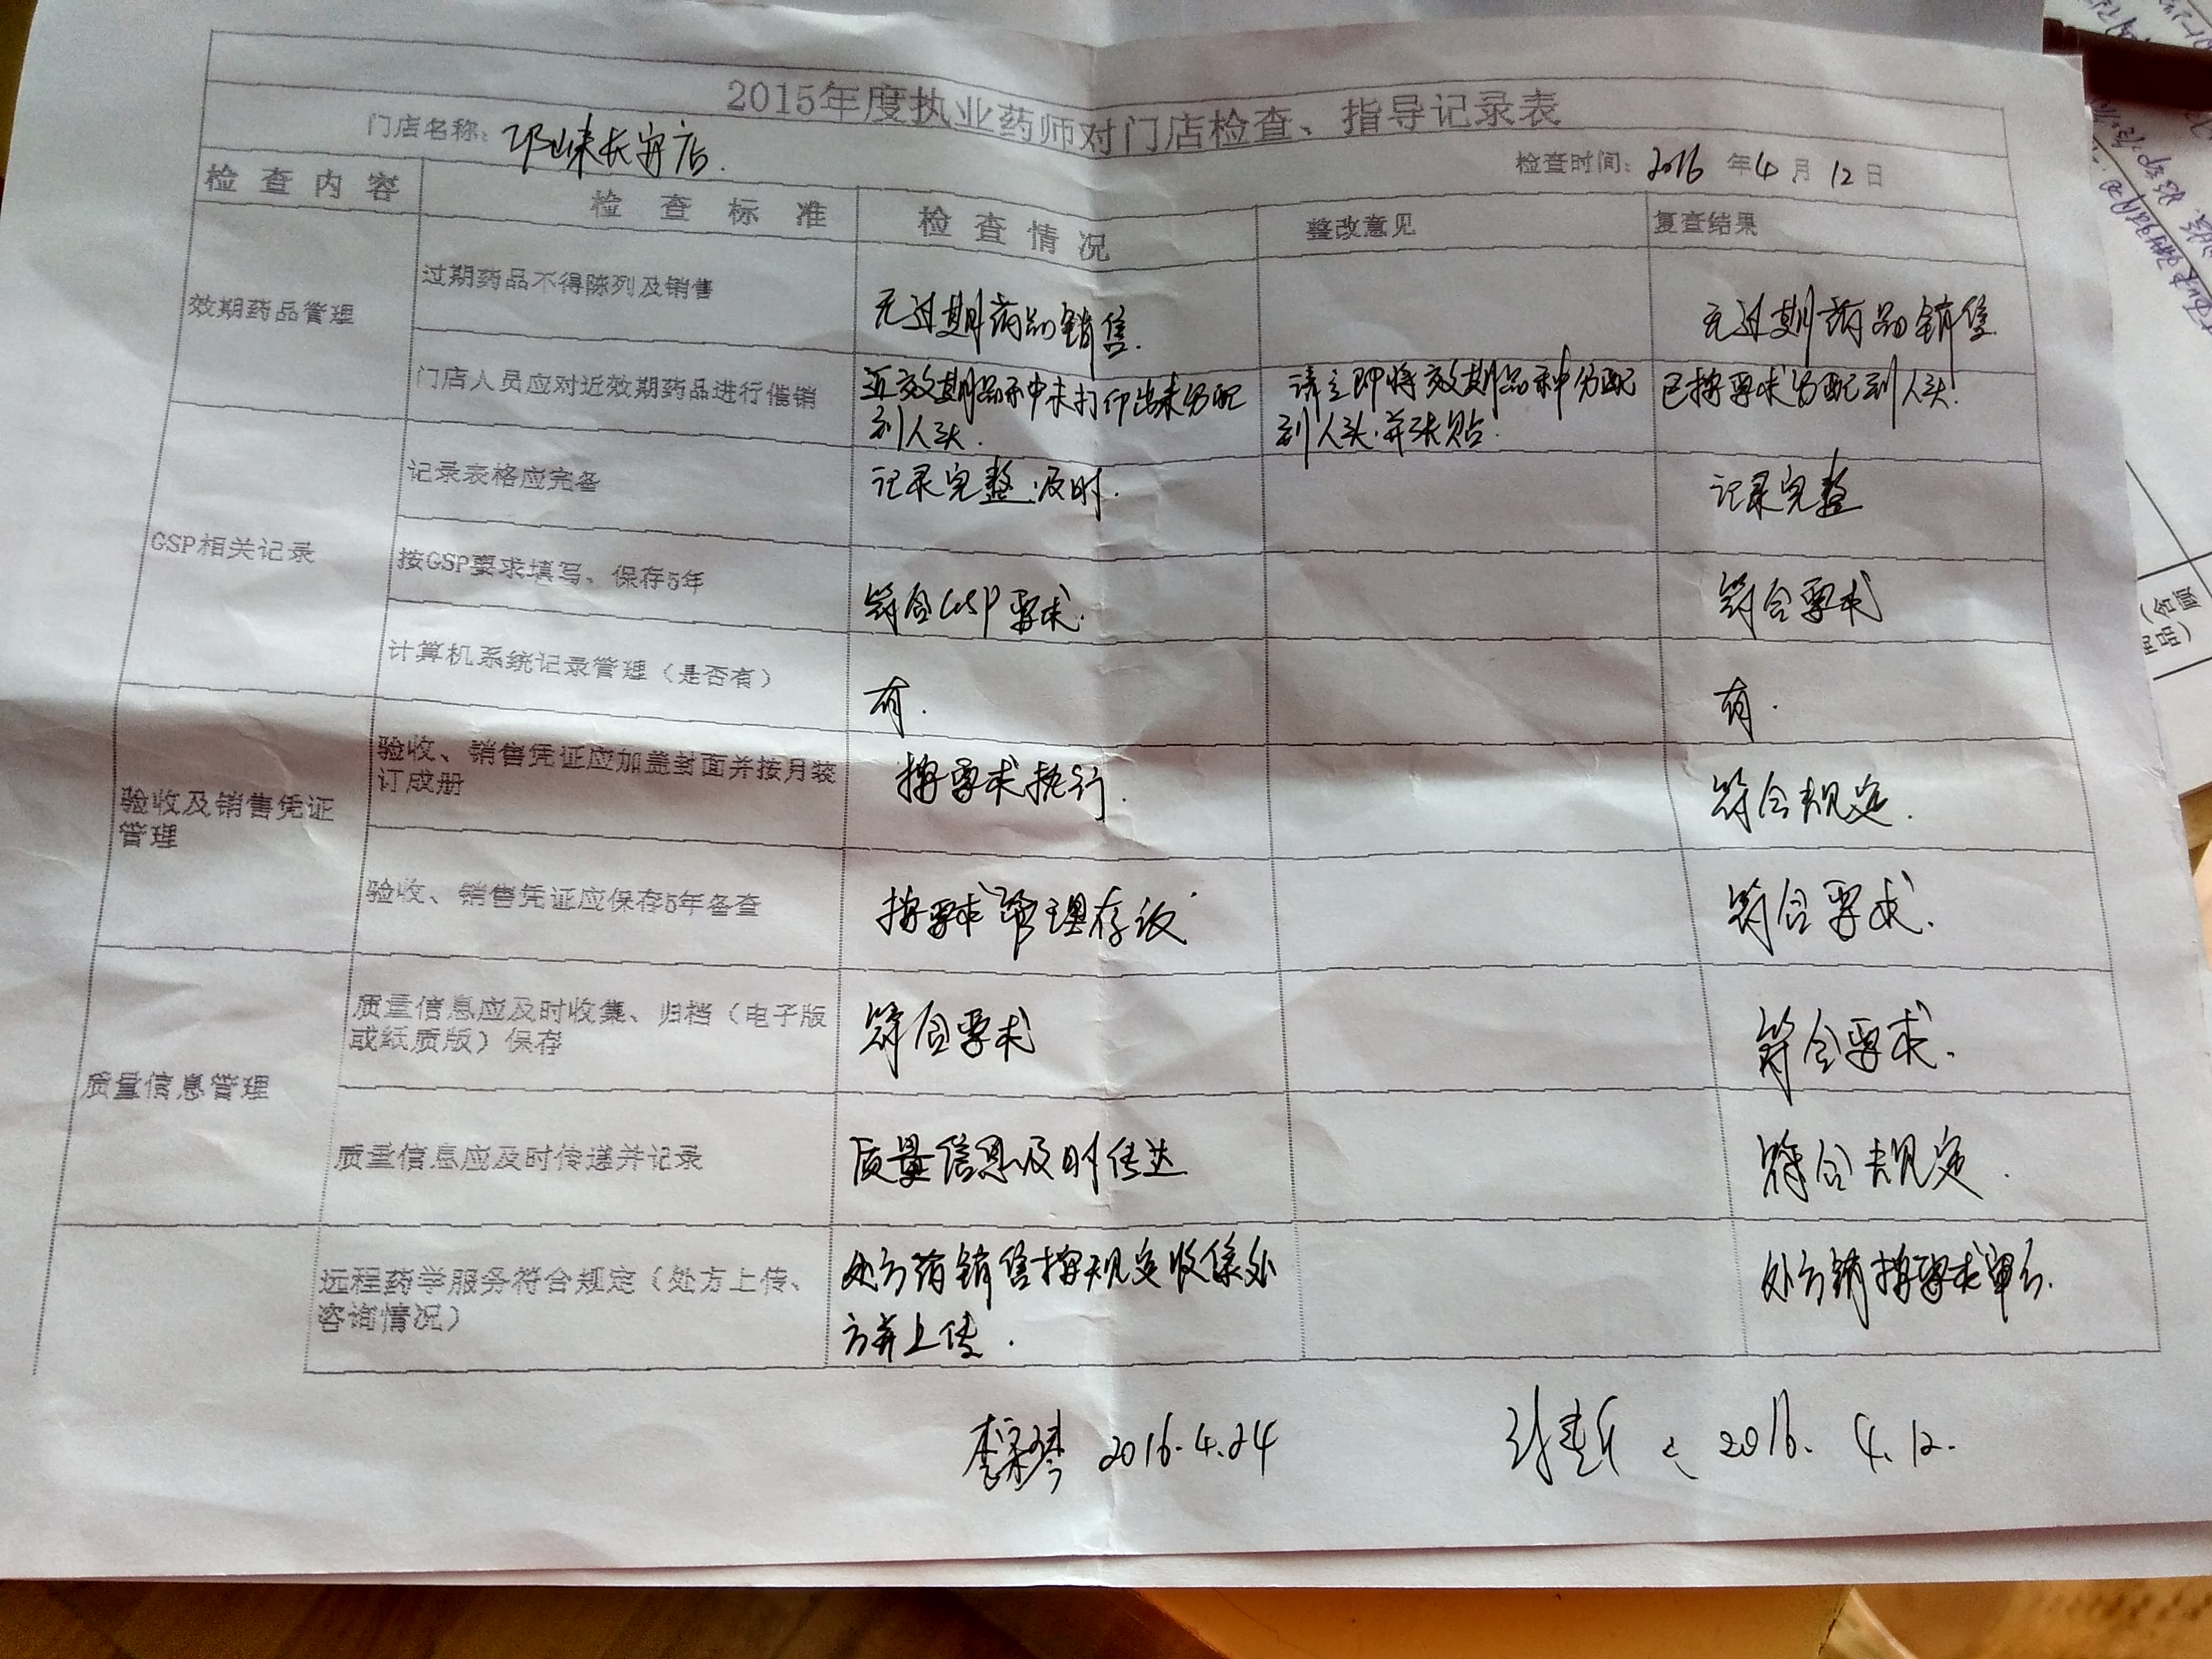 2015年度执业药师对门店检查、指导记录表
门店名称：邛崃长安店.
检查时间：2016年4月12日
检查内容 检查标准 检查情况 整改意见 复查结果
效期药品管理
过期药品不得陈列及销售 无过期药品销售. 无过期药品销售.
门店人员应对近效期药品进行催销 近效期品种中未打印出来分配 请立即将效期品种分配 已按要求分配到人头.
到人头. 到人头.并张贴.
GSP相关记录
记录表格应完备 记录完整.及时. 记录完整
按GSP要求填写、保存5年 符合GSP要求. 符合要求
计算机系统记录管理（是否有） 有. 有.
验收及销售凭证
管理
验收、销售凭证应加盖封面并按月装
订成册 按要求执行. 符合规定.
验收、销售凭证应保存5年备查 按要求管理存放 符合要求.
质量信息管理
质量信息应及时收集、归档（电子版
或纸质版）保存 符合要求 符合要求.
质量信息应及时传递并记录 质量信息及时传达 符合规定.
远程药学服务符合规定（处方上传、
咨询情况）
处方药销售按规定收集处
方并上传.
处方销按要求审方.
2016.4.24
2016. 4.12.
（含顾
品）